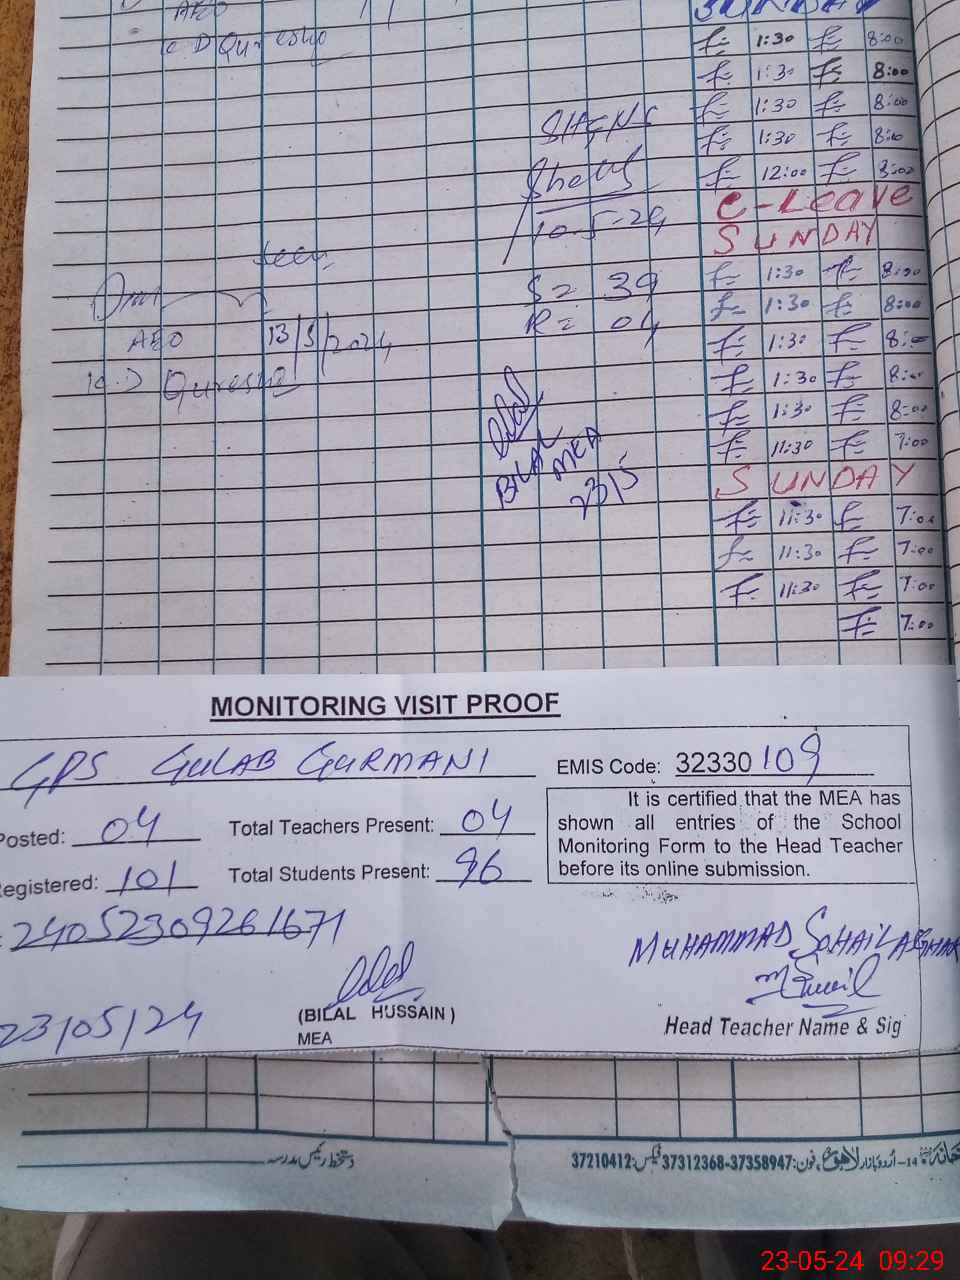 SUNDAY
AEO
1:30 8:00
Qureshi
1:30 8:00
1:30 8:00
1:30 8:00
12:00 8:00
C-Leave
10-5-24
SUNDAY
Seen
1:30 8:00
S= 39
1:30 8:00
R= 04
AEO 13/5/2024
1:30 8:00
Qureshi
1:30 8:00
1:30 8:00
BILAL
MEA
11:30 7:00
23/5
SUNDAY
11:30 7:00
11:30 7:00
11:30 7:00
7:00
MONITORING VISIT PROOF
GPS GULAB GURMANI EMIS Code: 32330109
Posted: 04 Total Teachers Present: 04
Registered: 101 Total Students Present: 96
It is certified that the MEA has
shown all entries of the School
Monitoring Form to the Head Teacher
before its online submission.
: 24052309261671
MUHAMMAD SOHAIL ASGHAR
23/05/24
(BILAL HUSSAIN)
MEA
Head Teacher Name & Sig
دستخط رئیس مدرسہ
14-اُردو بازار لاہور، فون: 37312368-37358947 فیکس: 37210412
23-05-24 09:29